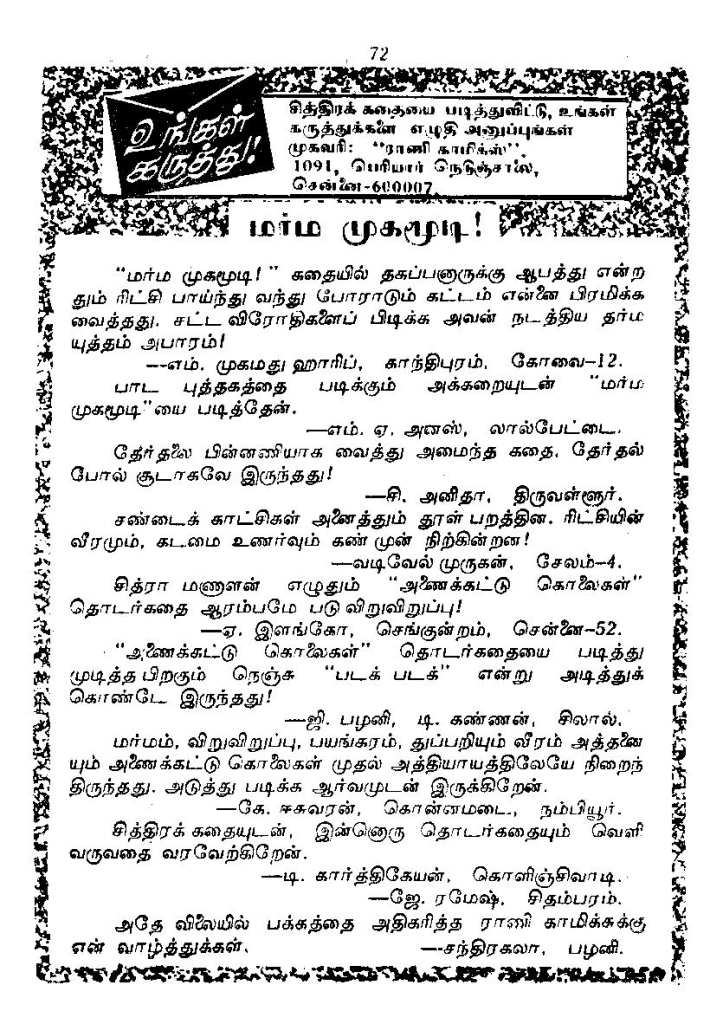 72
உங்கள்
கருத்து!
சித்திரக் கதையை படித்துவிட்டு, உங்கள்
கருத்துக்களை எழுதி அனுப்புங்கள்
முகவரி: "ராணி காமிக்ஸ்",
1091, பெரியார் நெடுஞ்சாலை,
சென்னை-600007.
மர்ம முகமூடி!
"மர்ம முகமூடி!" கதையில் தகப்பனாருக்கு ஆபத்து என்ற
தும் ரிட்சி பாய்ந்து வந்து போராடும் கட்டம் என்னை பிரமிக்க
வைத்தது. சட்ட விரோதிகளைப் பிடிக்க அவன் நடத்திய தர்ம
யுத்தம் அபாரம்!
—எம். முகமது ஹாரிப், காந்திபுரம், கோவை-12.
பாட புத்தகத்தை படிக்கும் அக்கறையுடன் "மர்ம
முகமூடி"யை படித்தேன்.
—எம். ஏ. அனஸ், லால்பேட்டை.
தேர்தலை பின்னணியாக வைத்து அமைந்த கதை, தேர்தல்
போல் சூடாகவே இருந்தது!
—சி. அனிதா, திருவள்ளூர்.
சண்டைக் காட்சிகள் அனைத்தும் தூள் பறத்தின. ரிட்சியின்
வீரமும், கடமை உணர்வும் கண் முன் நிற்கின்றன!
—வடிவேல் முருகன், சேலம்-4.
சித்ரா மணாளன் எழுதும் "அணைக்கட்டு கொலைகள்"
தொடர்கதை ஆரம்பமே படு விறுவிறுப்பு!
—ஏ. இளங்கோ, செங்குன்றம், சென்னை-52.
"அணைக்கட்டு கொலைகள்" தொடர்கதையை படித்து
முடித்த பிறகும் நெஞ்சு "படக் படக்" என்று அடித்துக்
கொண்டே இருந்தது!
—ஜி. பழனி, டி. கண்ணன், சிலால்.
மர்மம், விறுவிறுப்பு, பயங்கரம், துப்பறியும் வீரம் அத்தனை
யும் அணைக்கட்டு கொலைகள் முதல் அத்தியாயத்திலேயே நிறைந்
திருந்தது. அடுத்து படிக்க ஆர்வமுடன் இருக்கிறேன்.
—கே. ஈசுவரன், கொன்னமடை., நம்பியூர்.
சித்திரக் கதையுடன், இன்னொரு தொடர்கதையும் வெளி
வருவதை வரவேற்கிறேன்.
—டி. கார்த்திகேயன், கொளிஞ்சிவாடி.
—ஜே. ரமேஷ், சிதம்பரம்.
அதே விலையில் பக்கத்தை அதிகரித்த ராணி காமிக்சுக்கு
என் வாழ்த்துக்கள். —சந்திரகலா, பழனி.